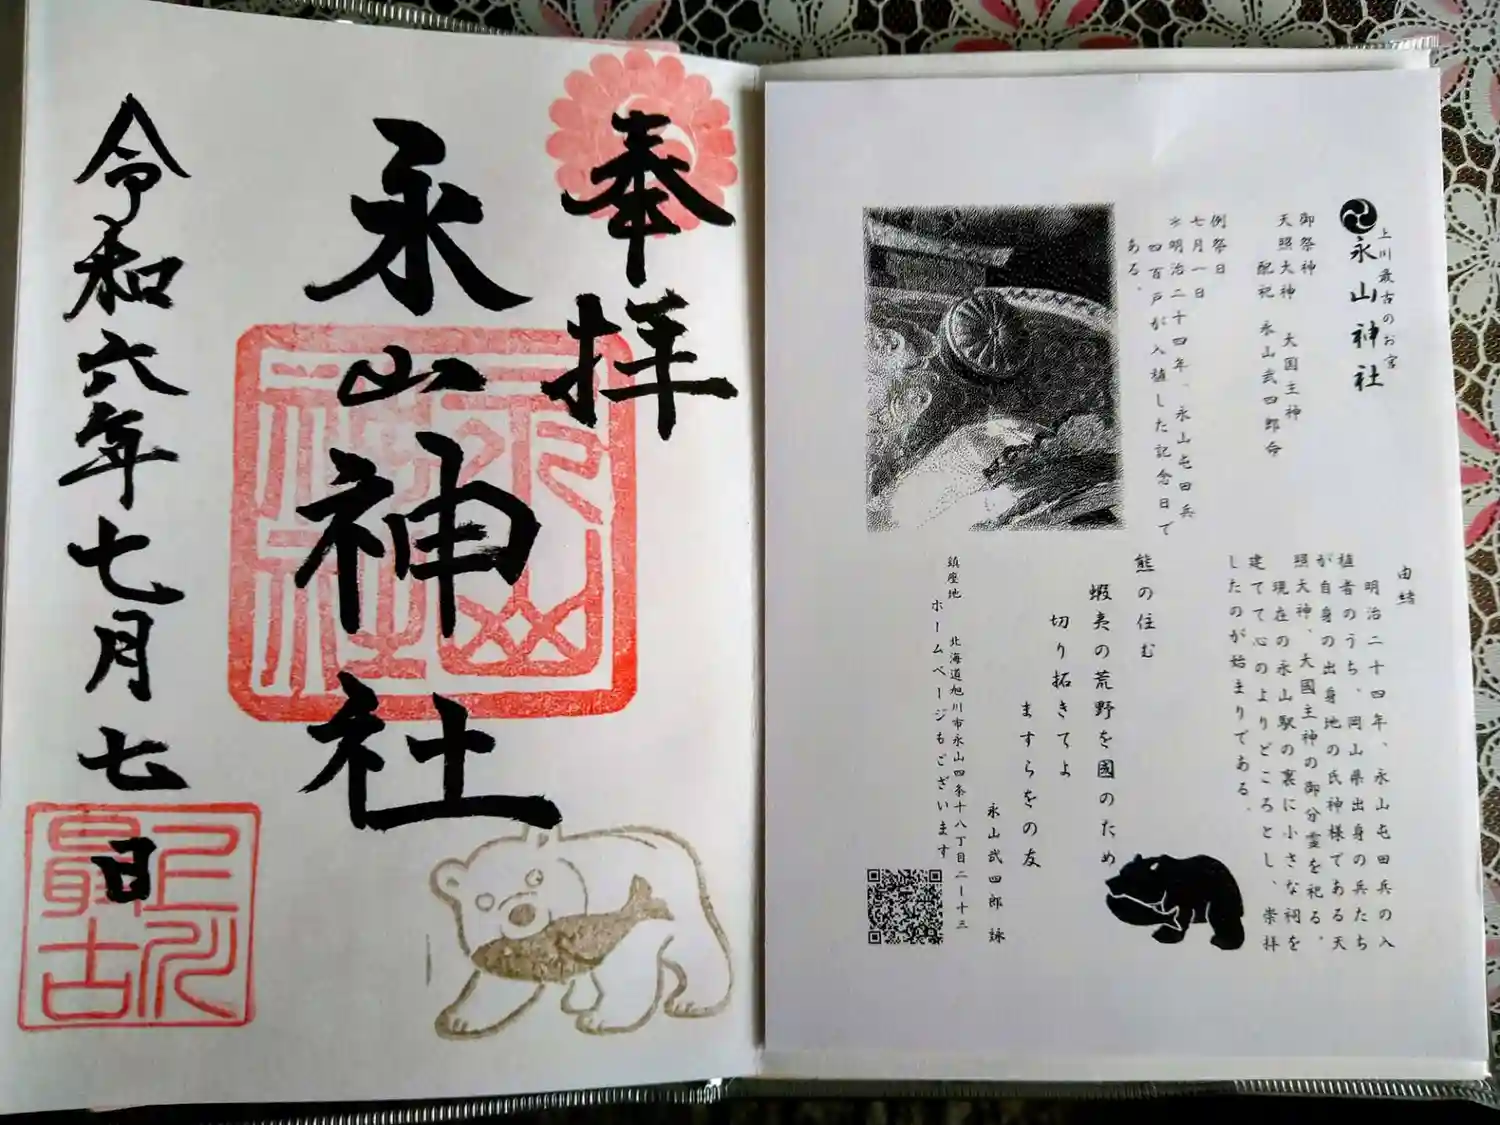 奉拝
永山神社
令和六年七月七日
上川最古
永山神社
上川最古のお宮
永山神社
御祭神
天照大神　大国主神
配祀　永山武四郎命
例祭日
七月一日
※明治二十四年、永山屯田兵
四百戸が入植した記念日で
ある。
由緒
明治二十四年、永山屯田兵の入
植者のうち、岡山県出身の兵たち
が自身の出身地の氏神様である天
照大神、大國主神の御分霊を祀る。
現在の永山駅の裏に小さな祠を
建てて心のよりどころとし、崇拝
したのが始まりである。
熊の住む
蝦夷の荒野を國のため
切り拓きてよ
ますらをの友
永山武四郎　詠
鎮座地　北海道旭川市永山四条十八丁目二ー十三
ホームページもございます